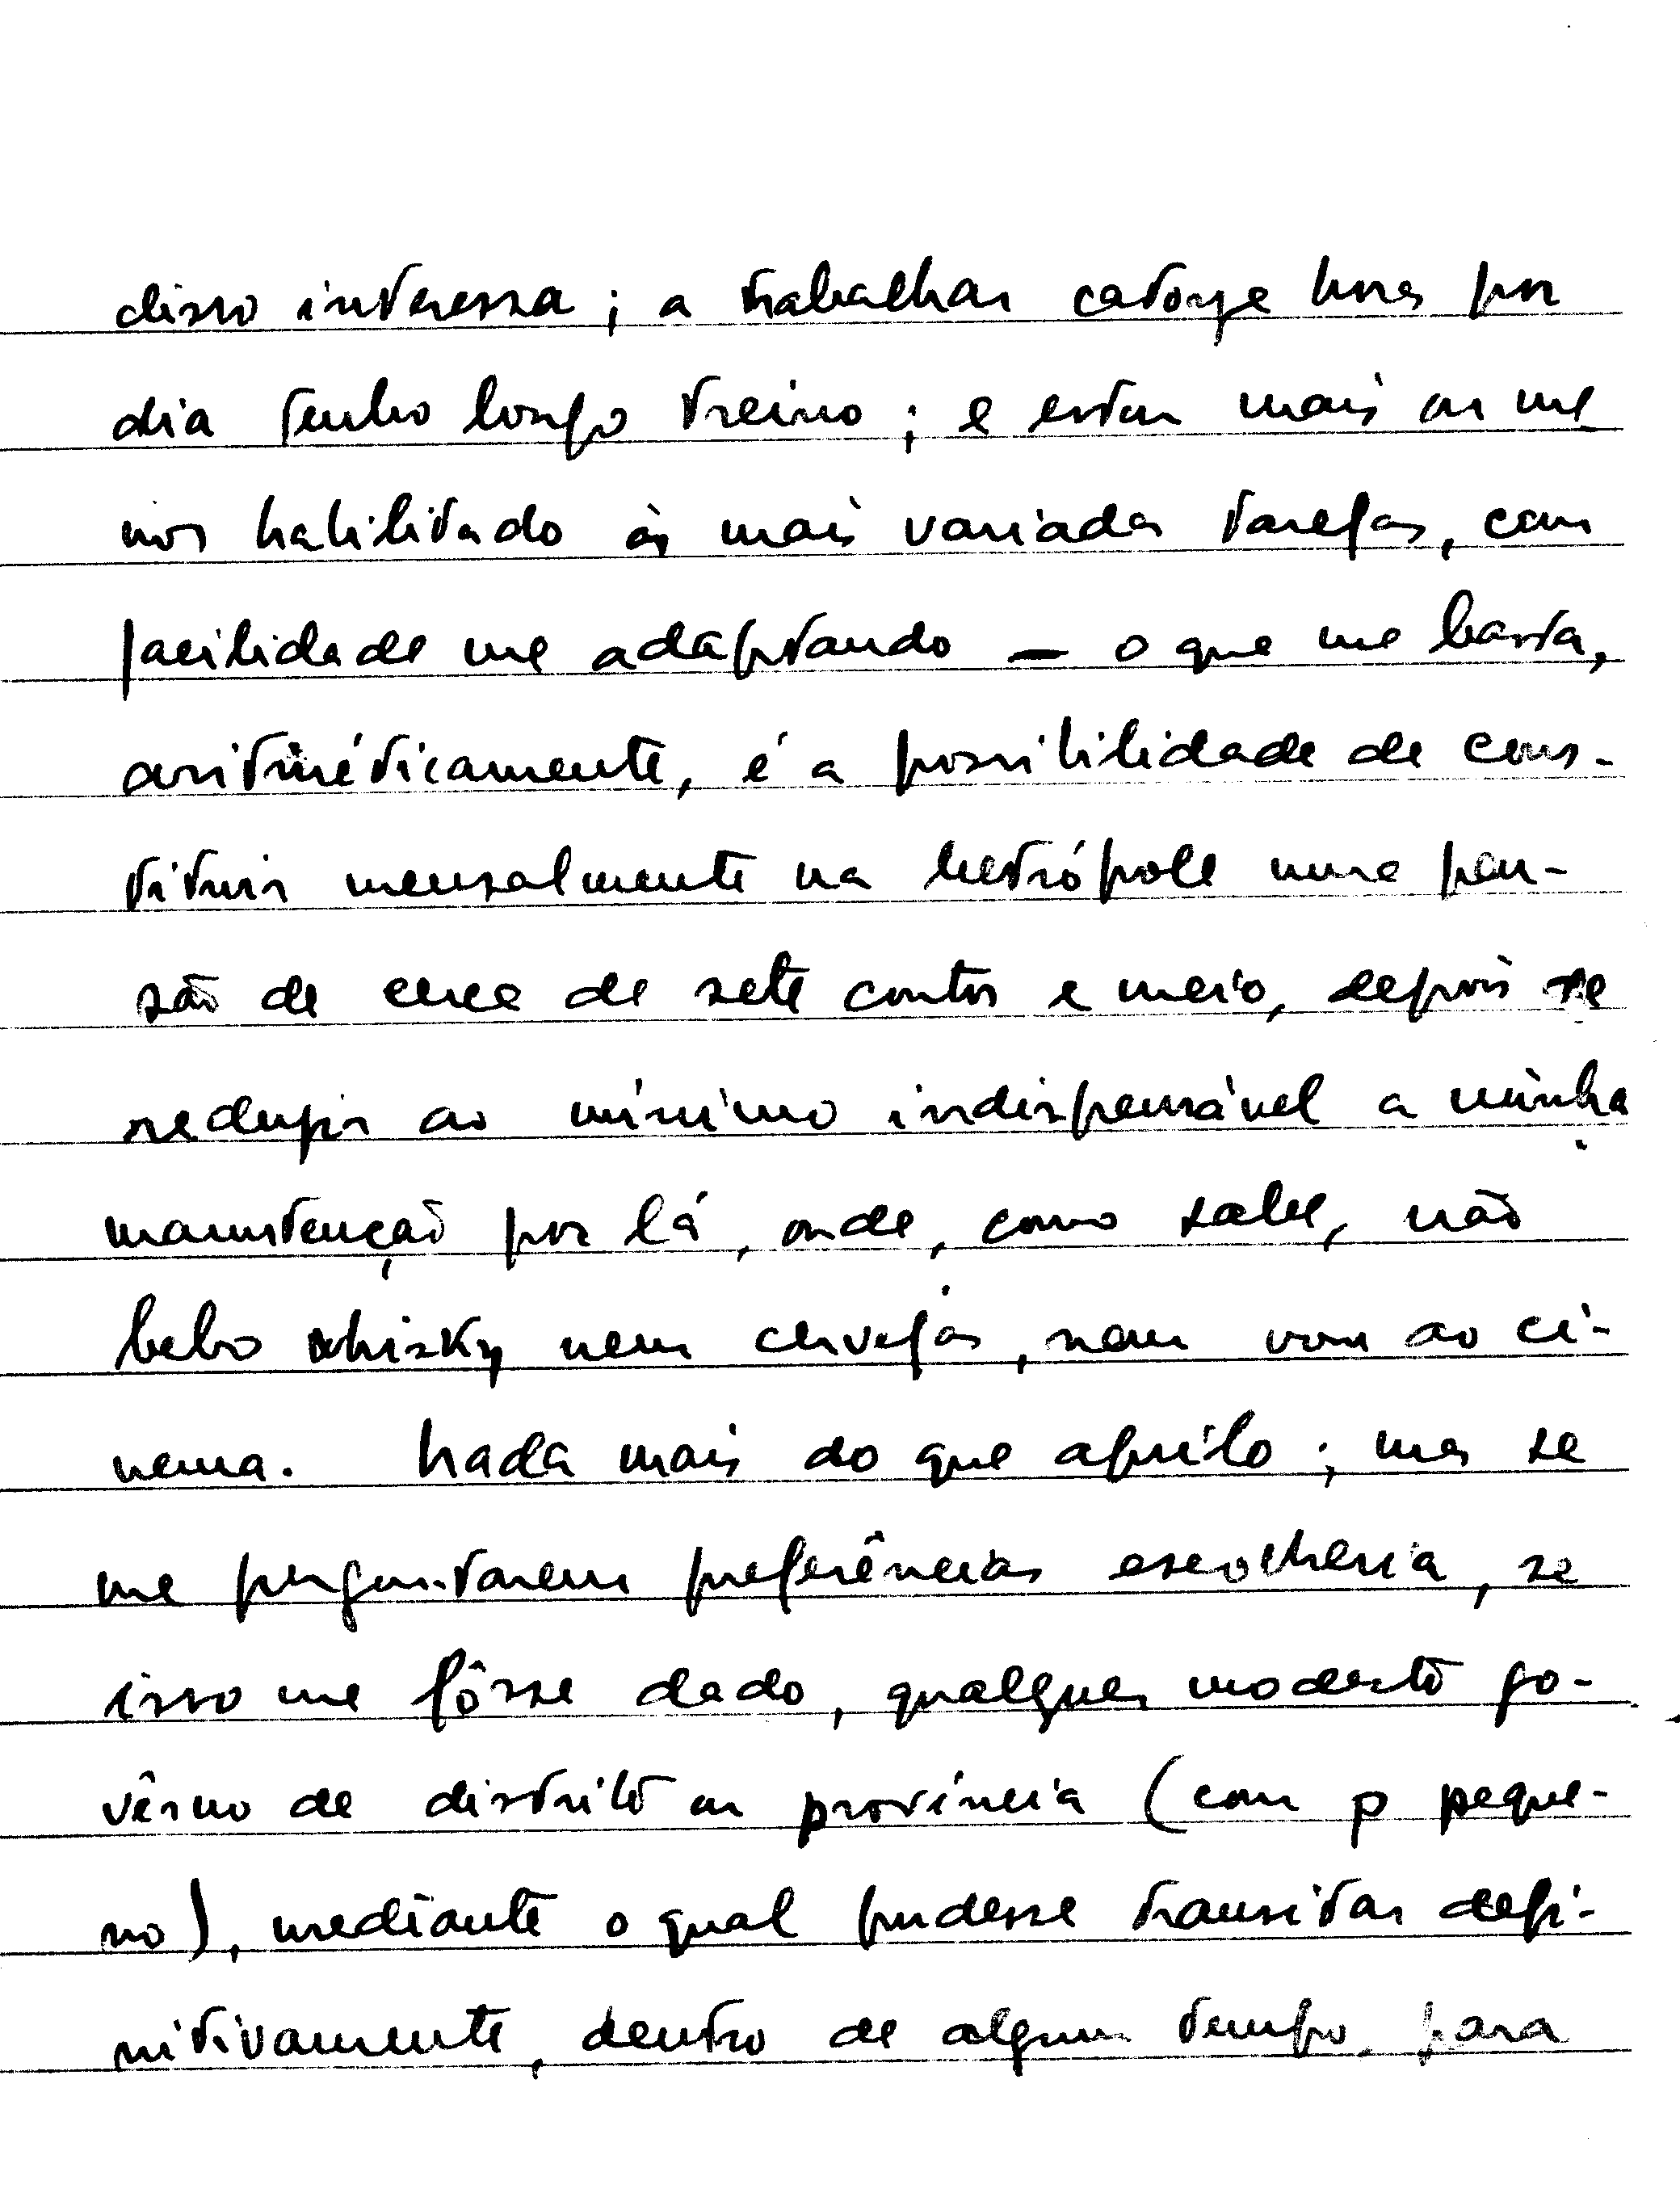 disso interessa; a trabalhar catorze horas por
dia tenho longo treino; e estou mais ou me
nos habilitado às mais variadas tarefas, com
facilidade me adaptando — o que me basta,
aritmèticamente, é a possibilidade de cons-
tituir mensalmente na Metrópole uma pen-
são de cerca de sete contos e meio, depois de
reduzir ao mínimo indispensável a minha
manutenção por lá, onde, como sabe, não
bebo whisky nem cervejas, nem vou ao ci-
nema. Nada mais do que aquilo; mas se
me perguntarem preferências escolheria, se
isso me fôsse dado, qualquer modesto go-
vêrno de distrito ou província (com p peque-
no), mediante o qual pudesse transitar defi-
nitivamente, dentro de algum tempo, para